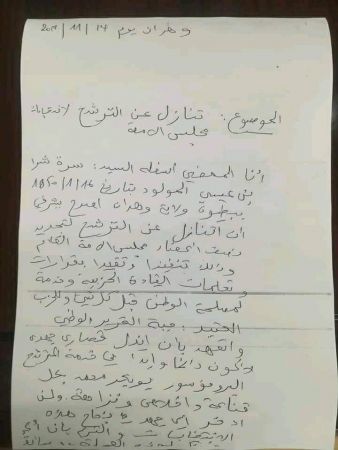 وهران يوم 14 / 11 /
الموضوع: تنازل عن الترشح لانتخابات
مجلس الامة
أنا الممضي أسفله السيد:
بن عيسى المولود بتاريخ 16/1/
ببطيوة ولاية وهران اصرح بشرفي
أن اتنازل عن الترشح لتجديد
نصف اعضاء مجلس الامة القادم
وذلك تنفيذا وتقيدا بقرارات
وتعليمات القيادة الحزبية وخدمة
لمصلحة الوطن قبل كل شيء والحزب
العتيد: جبهة التحرير الوطني
واتعهد بان ابذل قصارى جهدي
لأكون دائما وابدا في خدمة المترشح
البروفسور بكل
قناعة واخلاص ونزاهة ولن
ادخر اي جهد في نجاح هذه
الانتخابات بأن